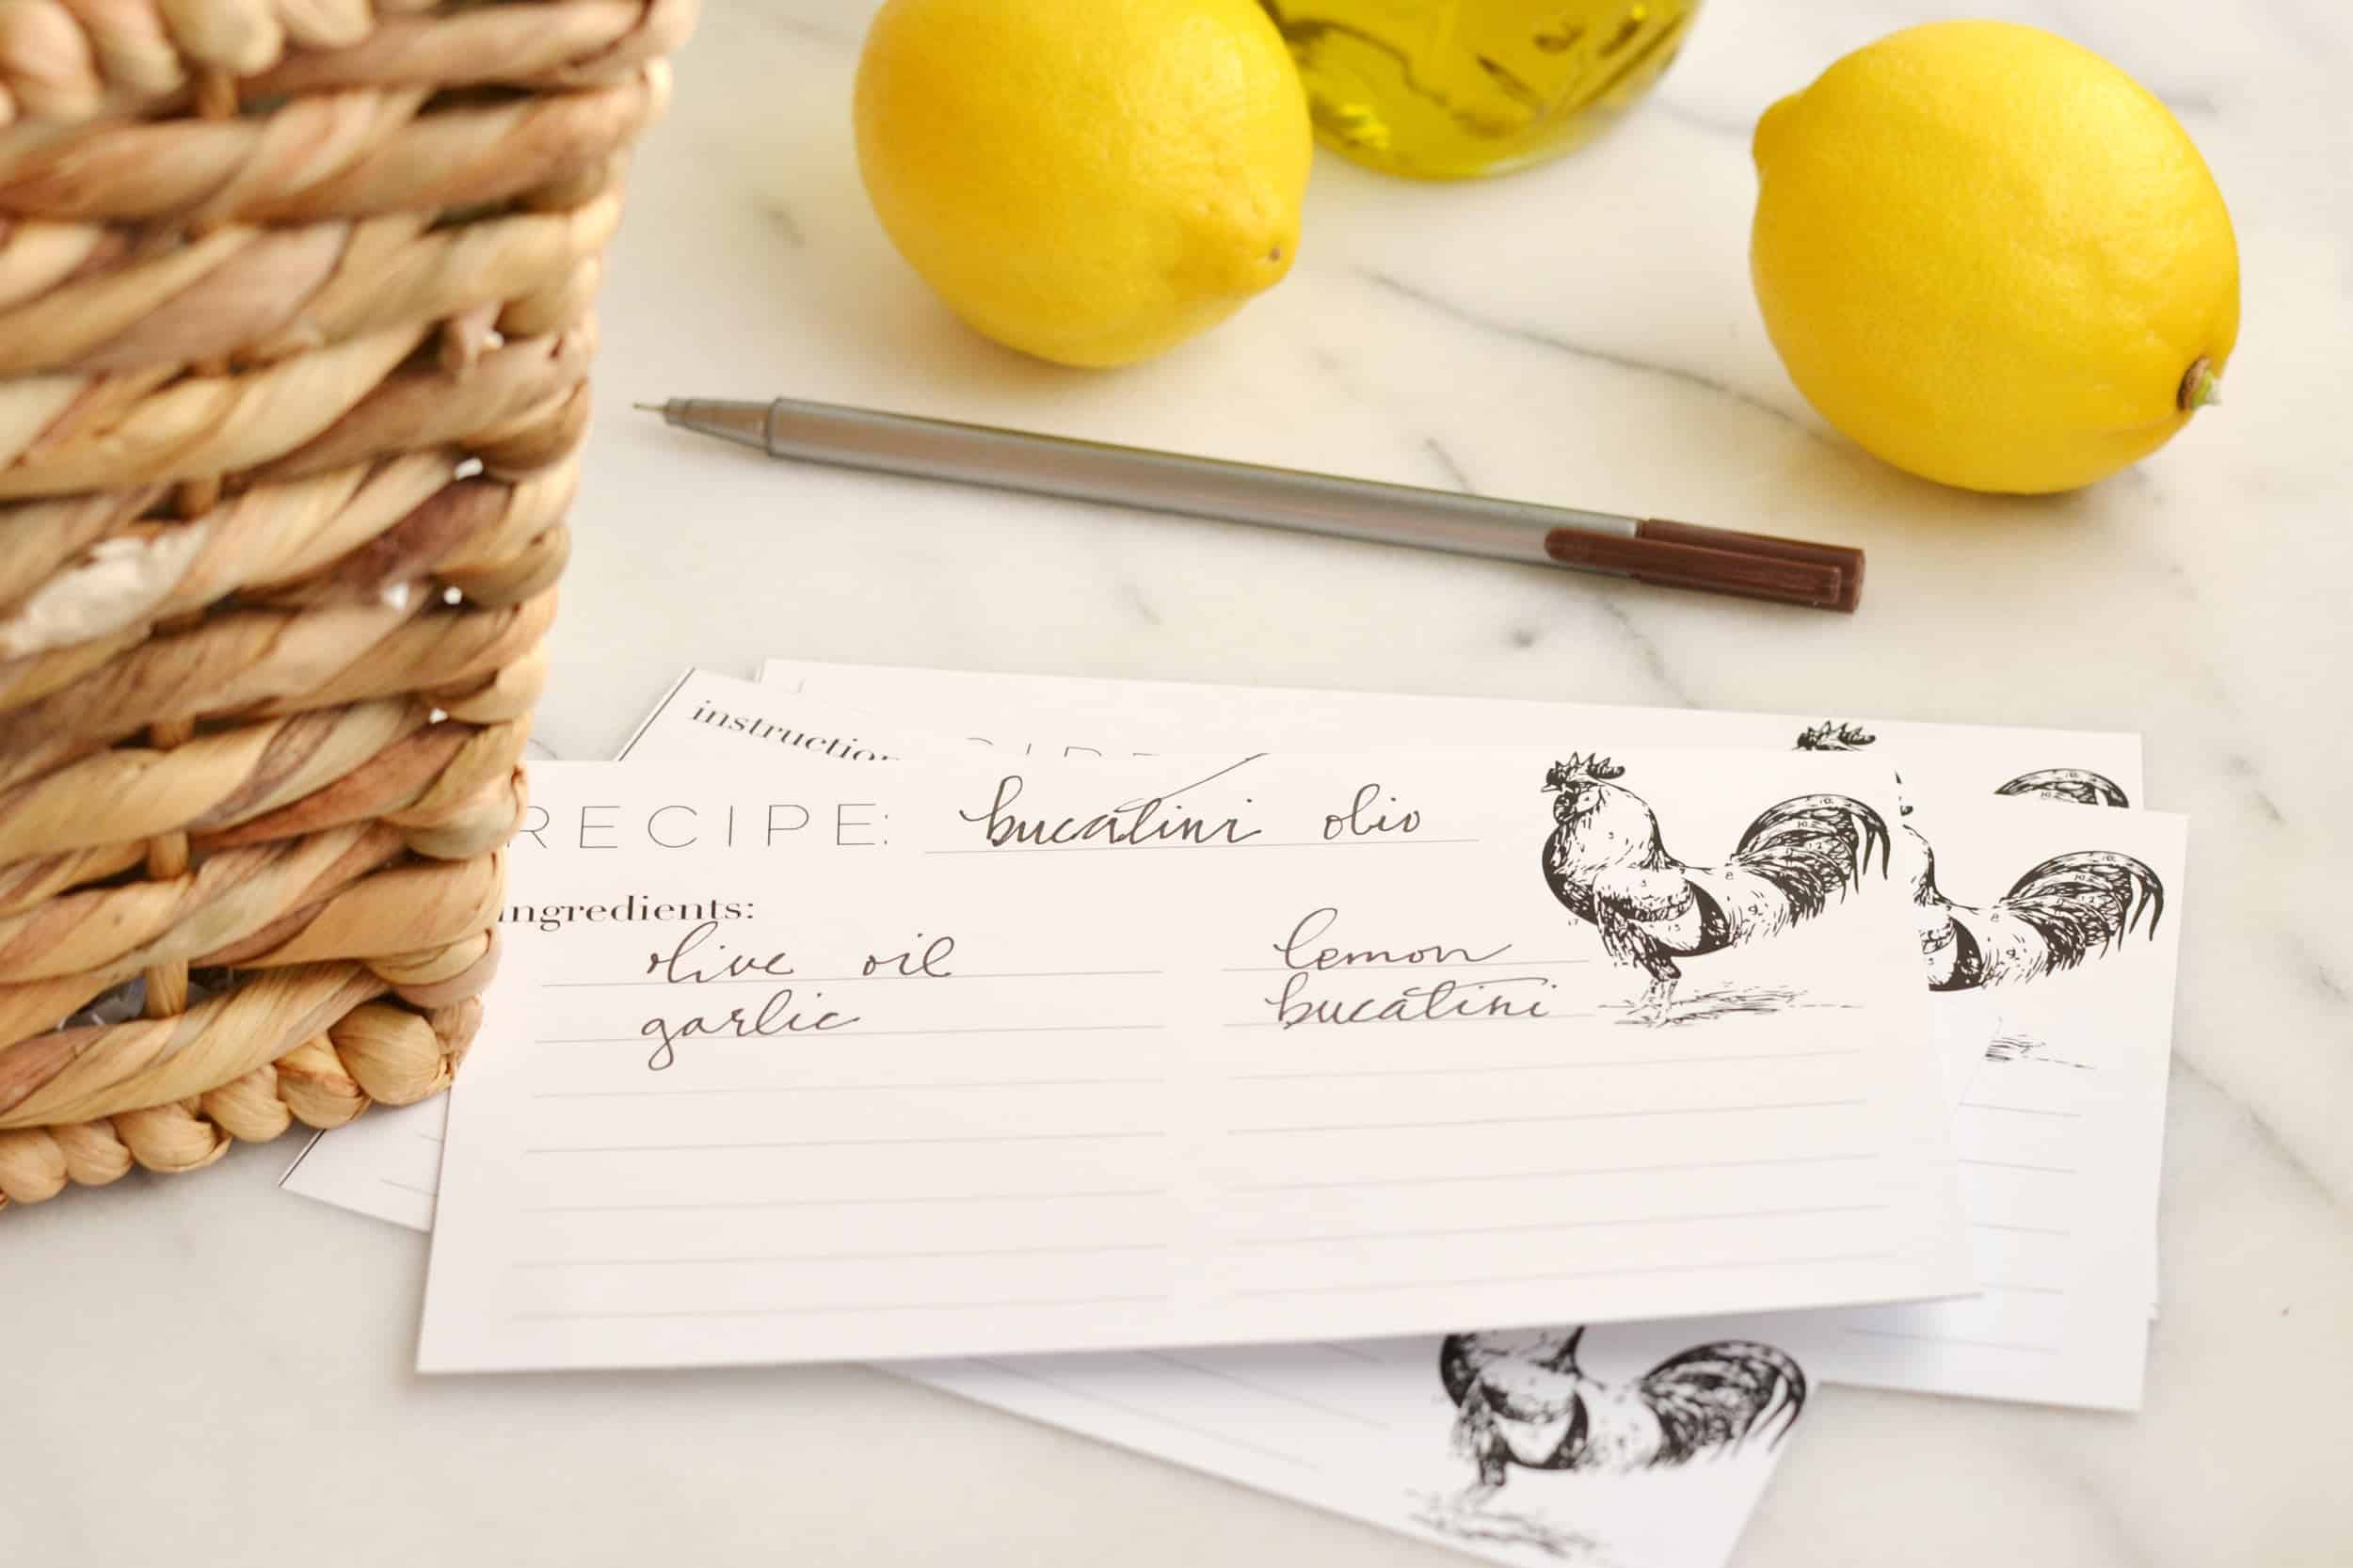 instruction
RECIPE: bucatini olio
ingredients:
olive oil lemon
garlic bucatini